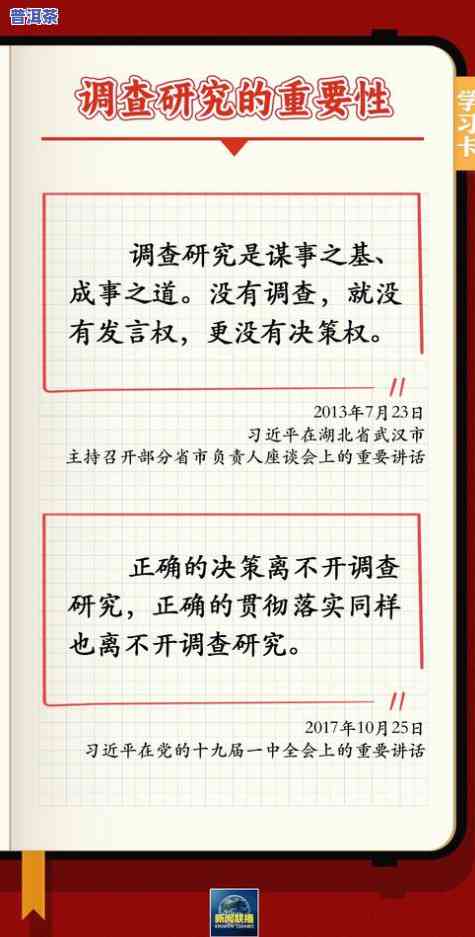 普洱茶
调查研究的重要性
学习卡
调查研究是谋事之基、
成事之道。没有调查，就没
有发言权，更没有决策权。
2013年7月23日
习近平在湖北省武汉市
主持召开部分省市负责人座谈会上的重要讲话
正确的决策离不开调查
研究，正确的贯彻落实同样
也离不开调查研究。
2017年10月25日
习近平在党的十九届一中全会上的重要讲话
新闻联播